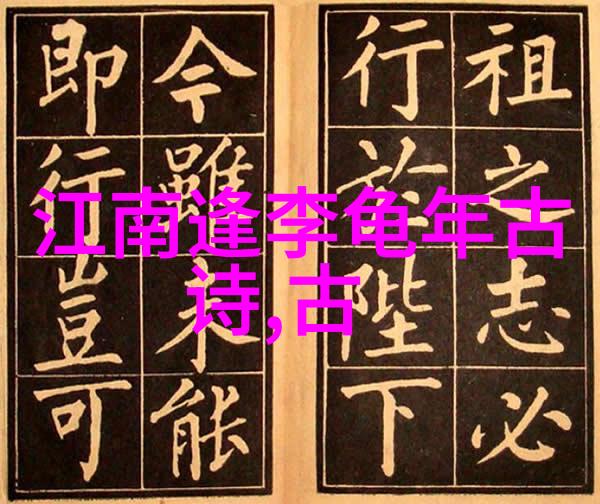 江南逢李龟年古
诗,古
祖之志必
行於陛下
今雖未能
即行豈可